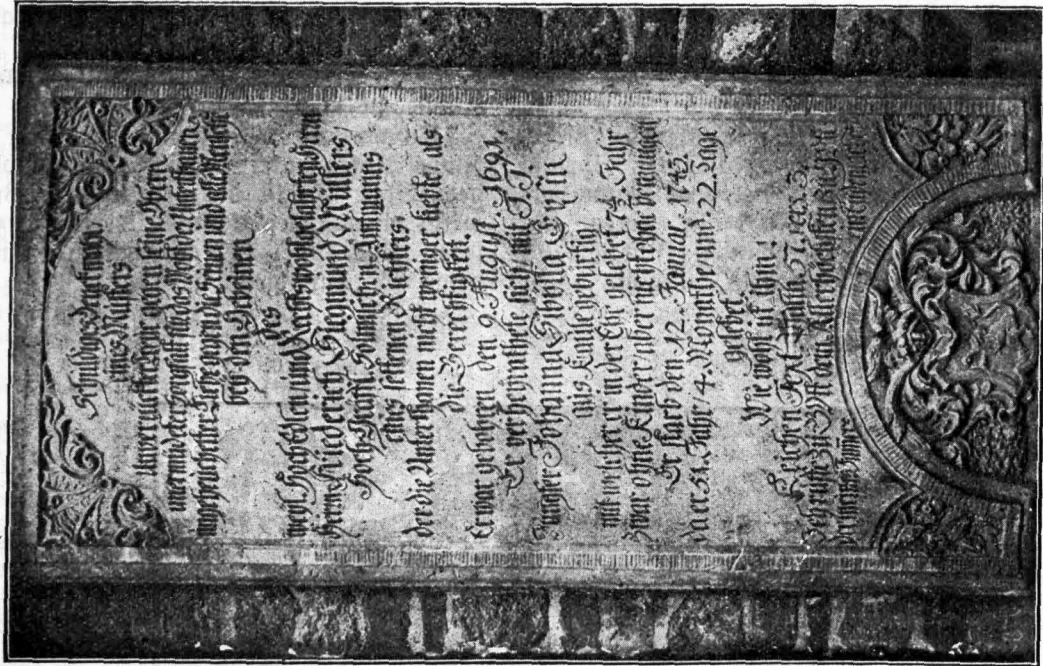 Schuldiges Denkmal
eines Musters
unverrückter Treue gegen seine Obern
unermüdeter Sorgfalt für das Wohl der Unterthanen
ungeheuchelter Liebe gegen die Seinen und alle Menschen
bey den Gebeinen
des
weyl. HochEdlen und Rechtswohlgelahrten Herrn
Herrn Friederich Sigmund Müllers
Hoch Gräfl. Solmischen Amtmanns
eines seltenen Richters.
der die Unterthanen nicht weniger liebte, als
die Gerechtigkeit.
Er war gebohren den 9 August. 1691.
Er verheyrathete sich mit T.T.
Jungfer Johanna Sibylla
aus Eule gebürtig
mit welcher er in der Ehe gelebet 7½. Jahr
zwar ohne Kinder aber nicht ohne Vergnügen
Er starb den 12. Januar. 1743.
da er 51. Jahr 4. Monathe und 22. Tage
gelebet
Wie wohl ist Ihm!
Leichen Text 57. vers 3.
Ich ruffe zu Gott dem Allerhöchsten zu Gott
der meines Jammers ein Ende macht